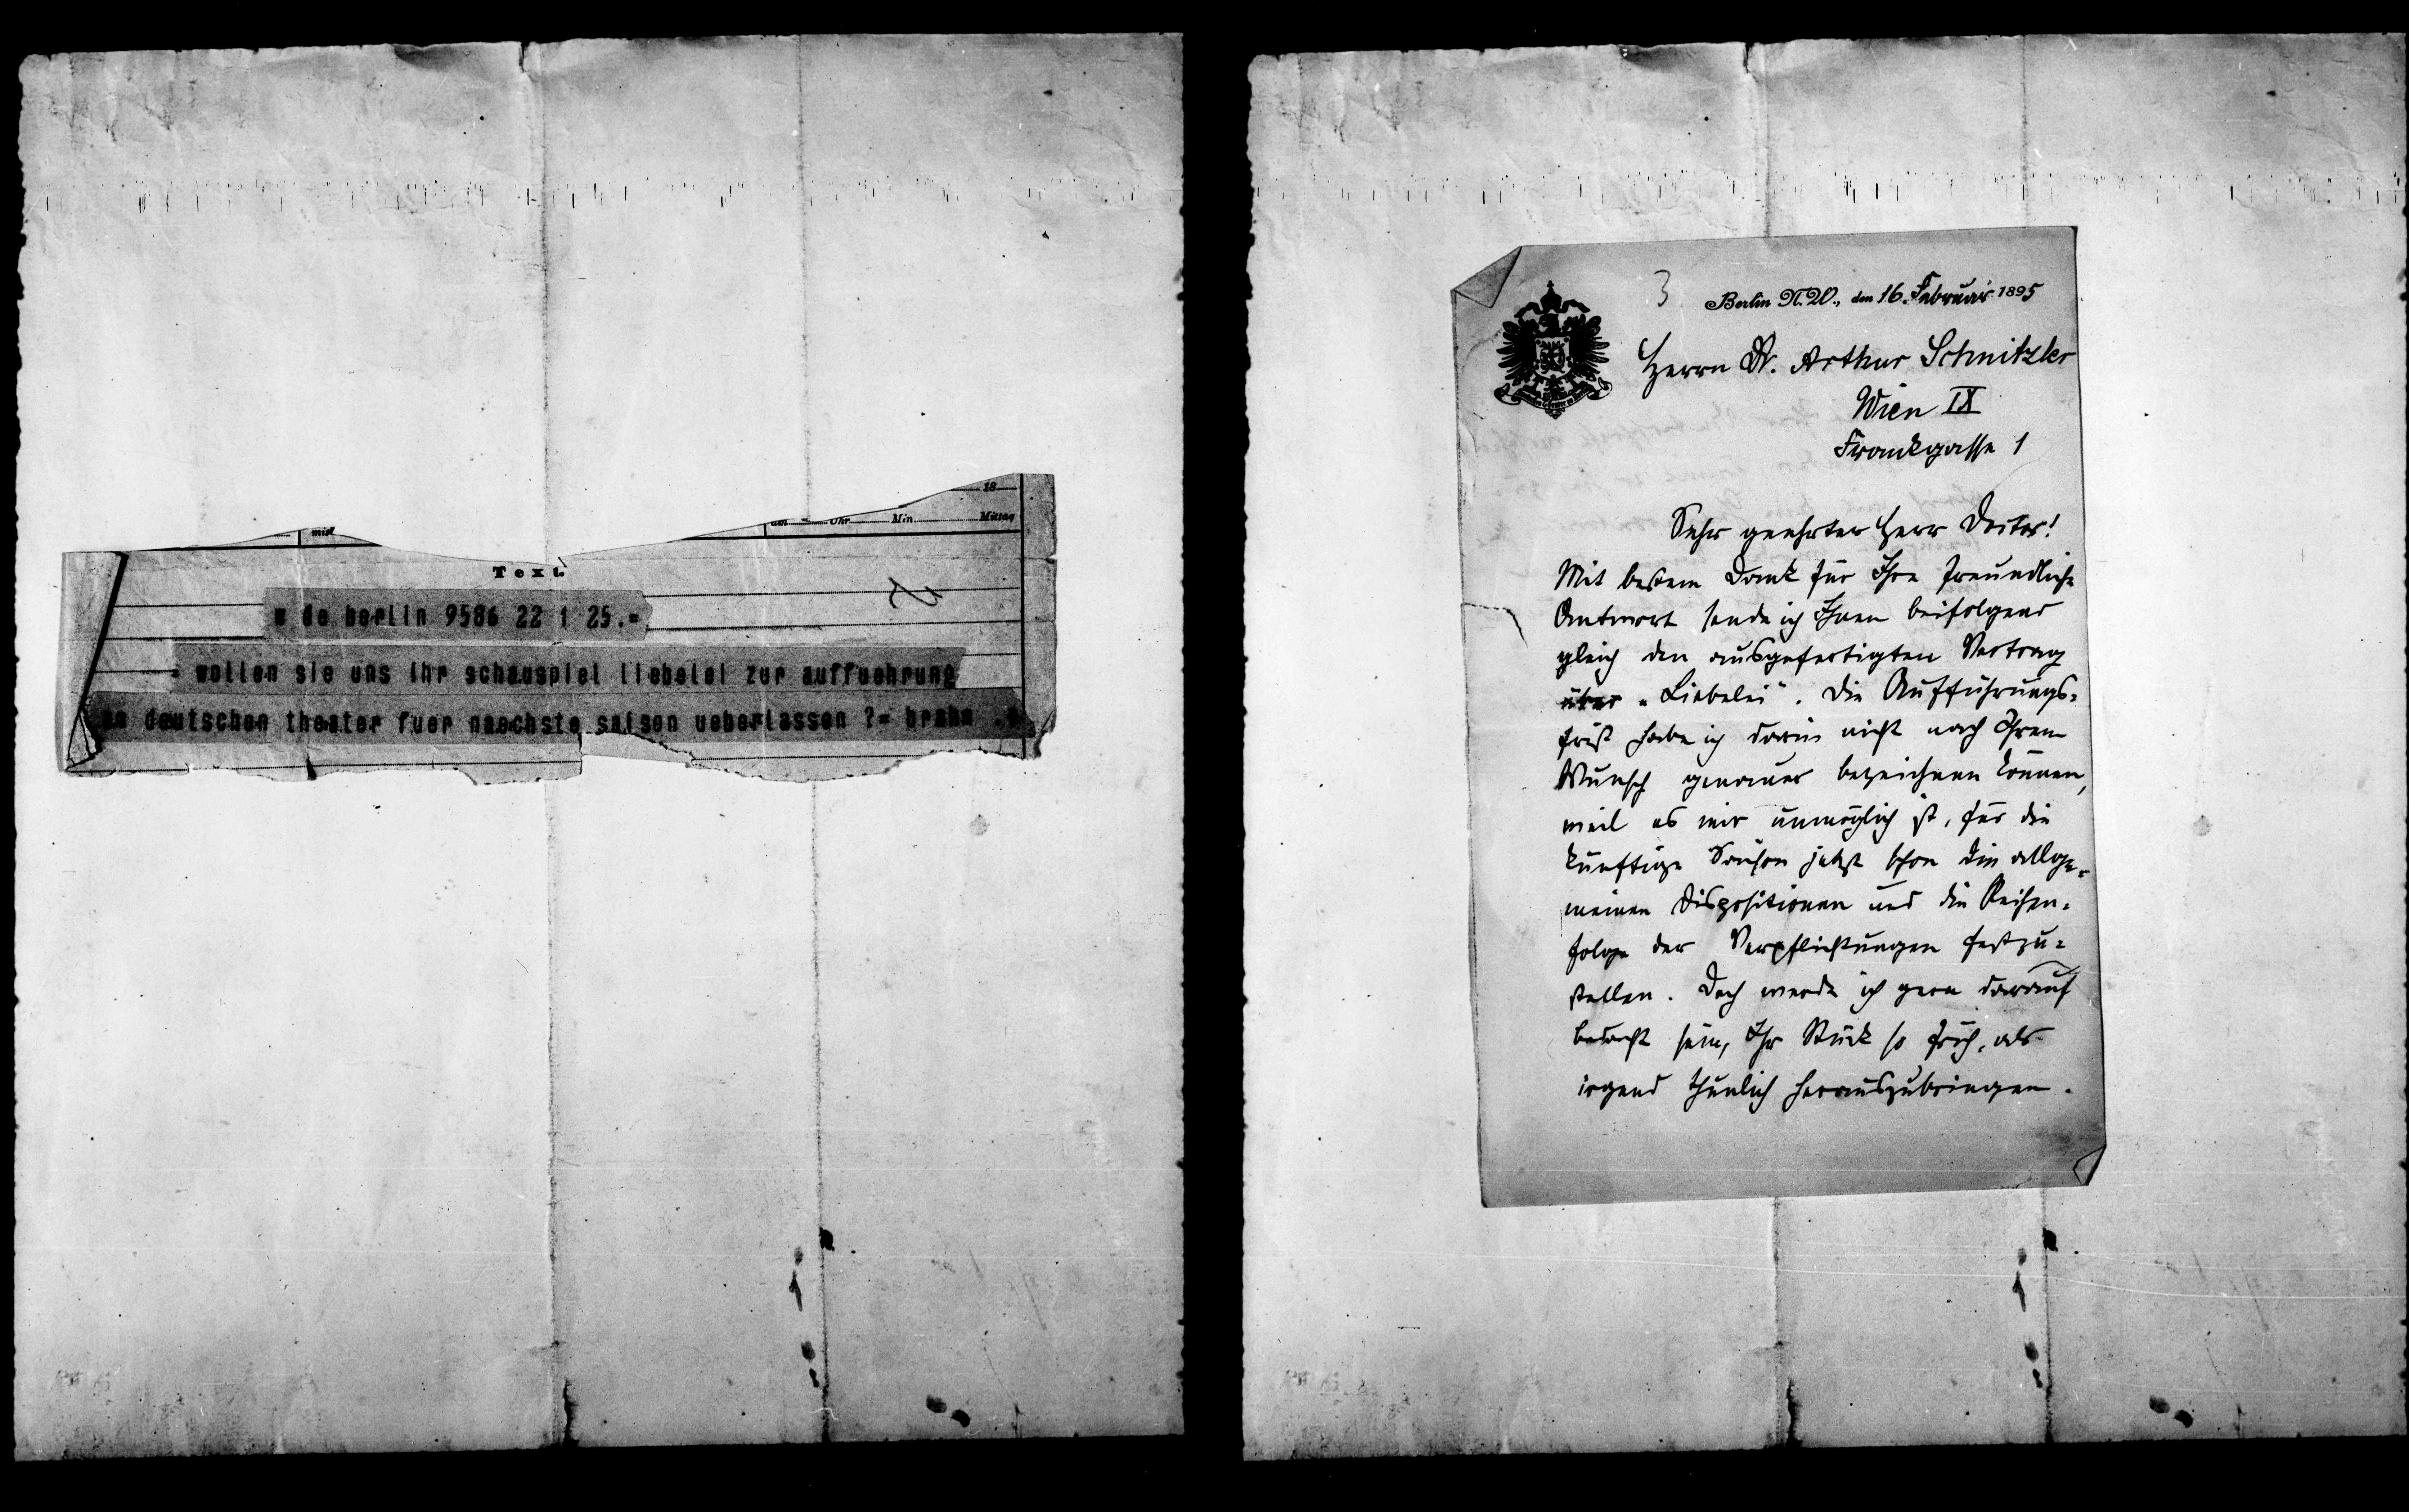 18
mist
am Uhr Min Mittag
Text.
w de berlin 9586 22 1 25.=
= wollen sie uns ihr schauspiel liebelei zur auffuehrung
am deutschen theater fuer naechste saison ueberlassen ?= brahm .+
3
Berlin N.W., den 16. Februar 1895
Herrn Dr. Arthur Schnitzler
Wien IX
Frankgasse 1
Sehr geehrter Herr Doctor!
Mit bestem Dank für Ihre freundliche
Antwort sende ich Ihnen beifolgend
gleich den ausgefertigten Vertrag
über „Liebelei“. Die Aufführungs=
frist habe ich darin nicht nach Ihrem
Wunsch genauer bezeichnen können,
weil es mir unmöglich ist, für die
künftige Saison jetzt schon die allge=
meinen Dispositionen und die Reihen=
folge der Verpflichtungen festzu=
stellen. Doch werde ich gern darauf
bedacht sein, Ihr Stück so früh, als
irgend thunlich herauszubringen.